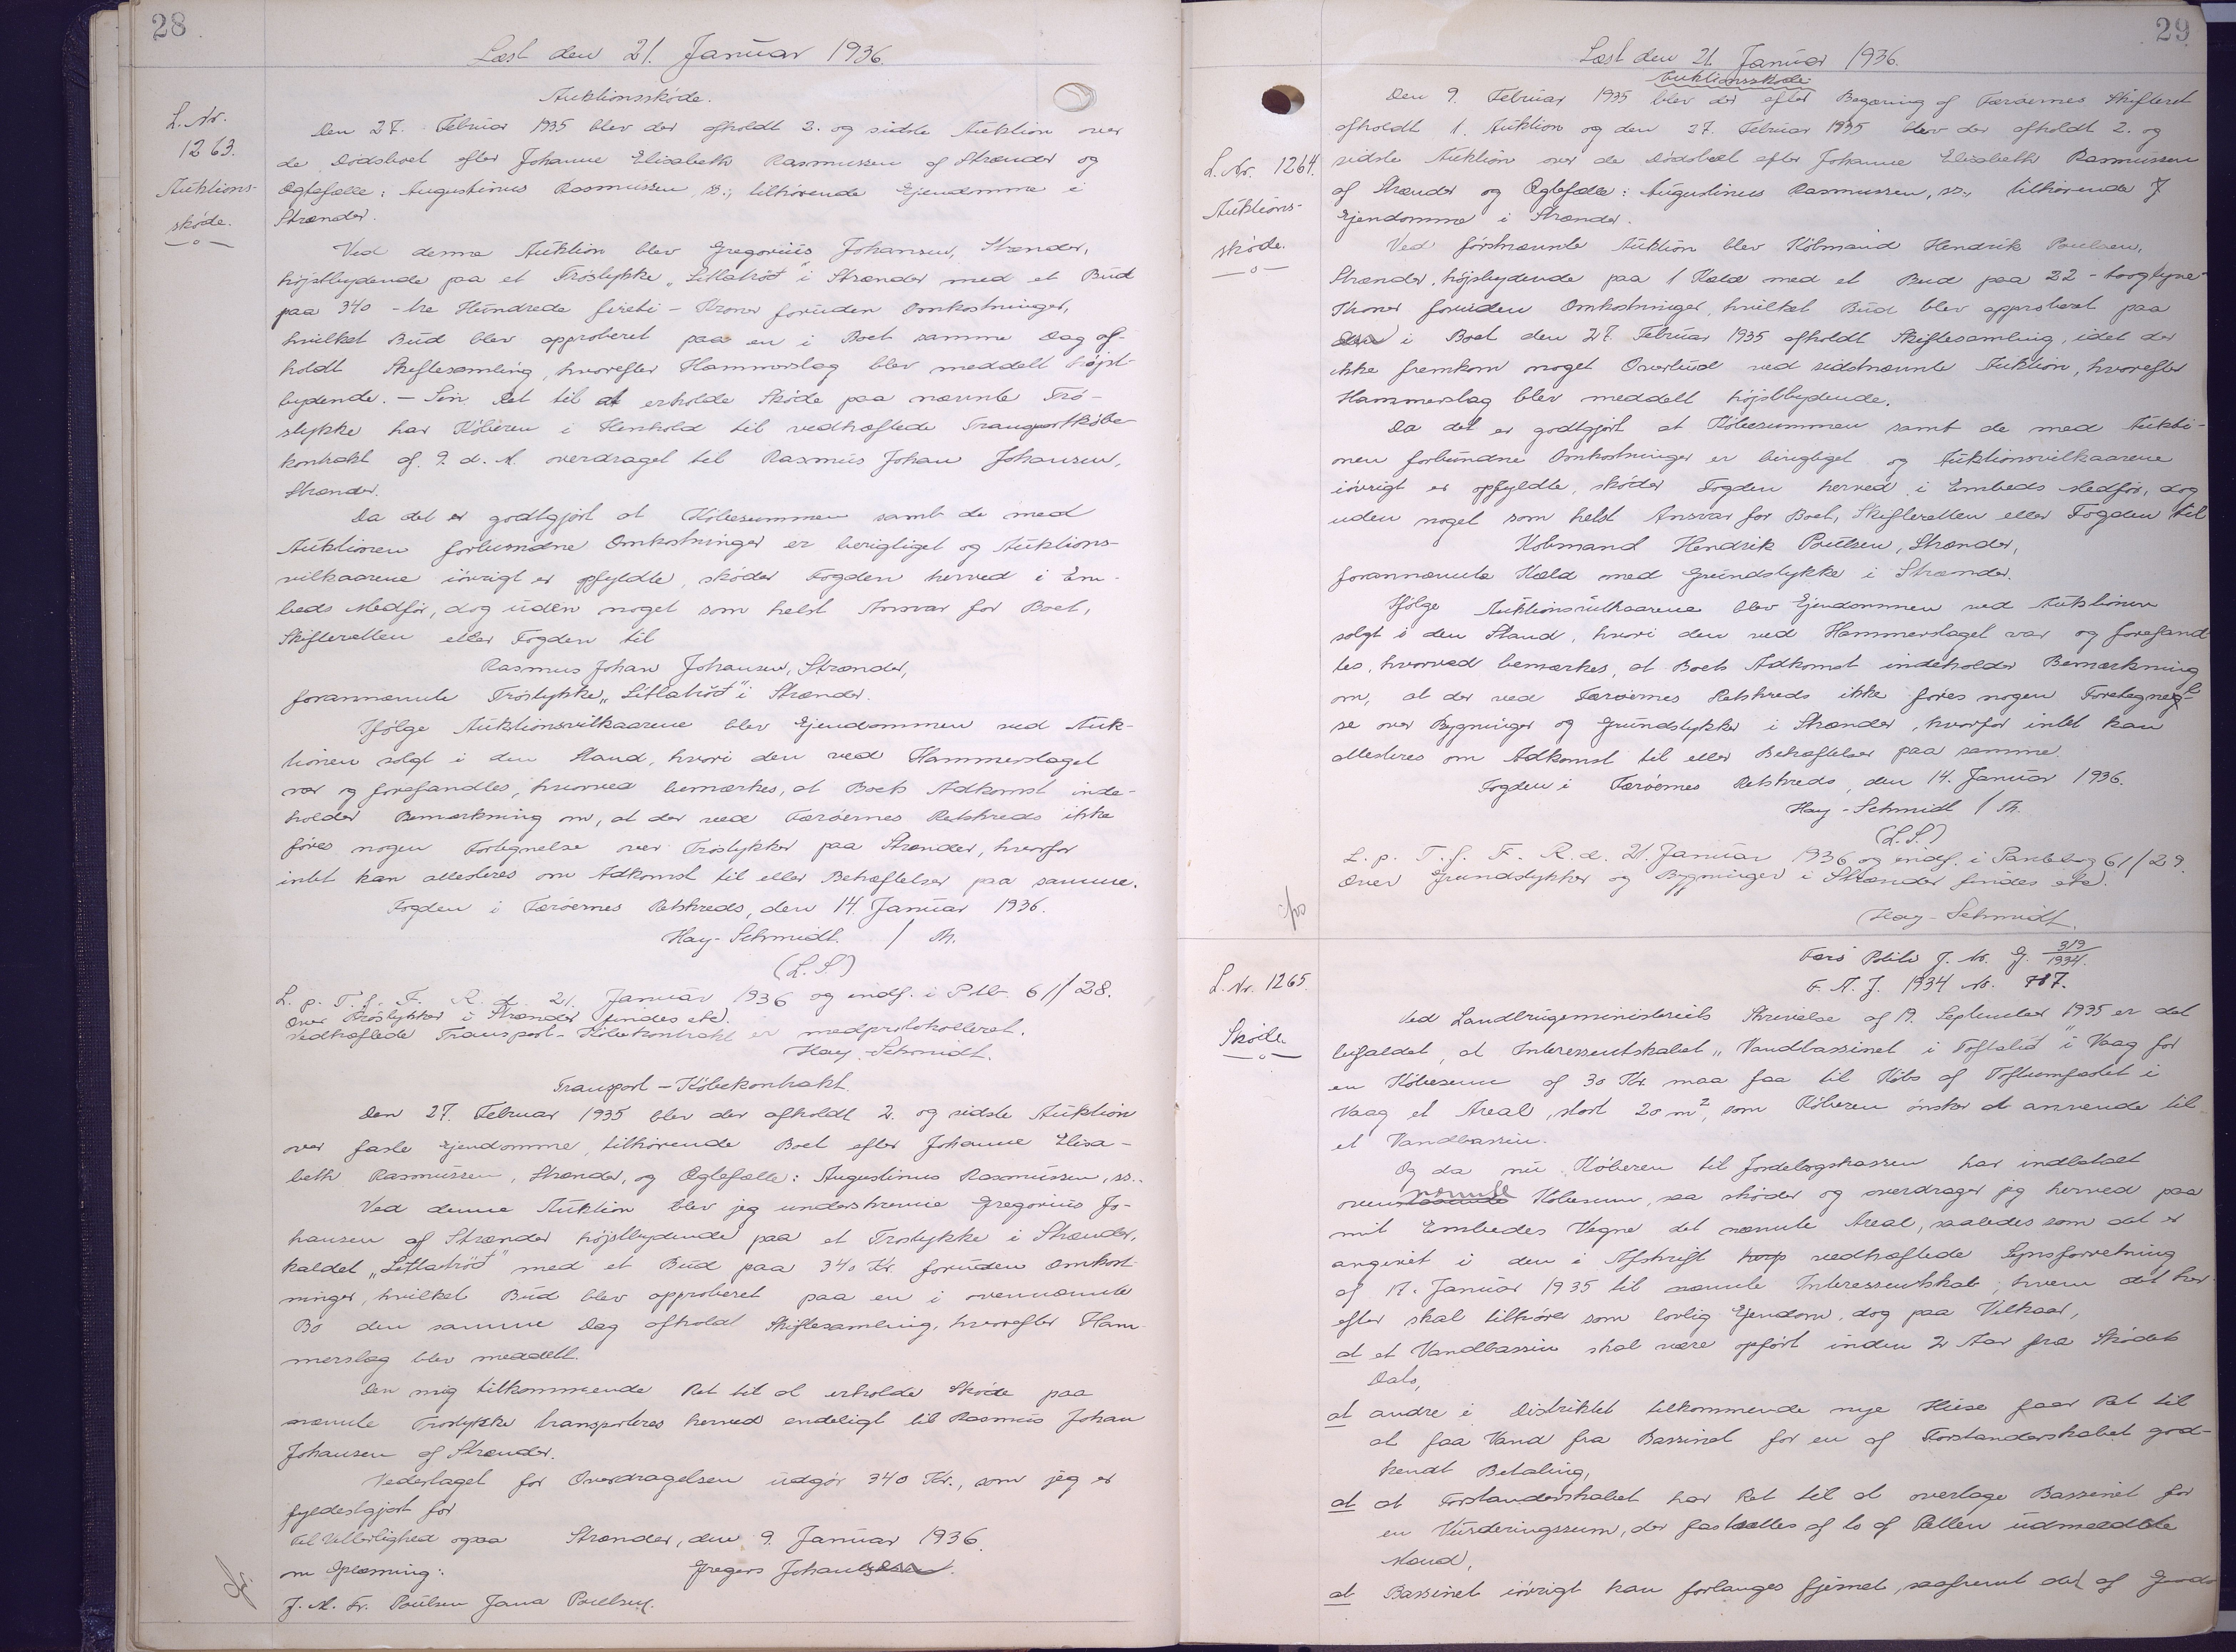 28
Læst den 21. Januar 1936.
Auktionsskøde.
L. Nr.
1263.
Auktions-
skøde.
Den 27. Februar 1935 blev der afholdt 2. og sidste Auktion over
de Dödsboet efter Johanne Elisabeth Rasmussen af Strænder og
Ægtefælle: Augustinus Rasmussen, ss., tilhörende Ejendomme i
Strænder.
Ved denne Auktion blev Gregorius Johansen, Strænder,
höjstbydende paa et Tröstykke „Litlatröd" i Strænder med et Bud
paa 340 - tre Hundrede firti - Kroner foruden Omkostninger,
hvilket Bud blev approberet paa en i Boet samme Dag af-
holdt Skiftesamling, hvorefter Hammerslag blev meddelt höjst-
bydende. - Sin Ret til at erholde Sköde paa nævnte Trö-
stykke har Köberen i Henhold til vedhæftede Transportköbe-
kontrakt af 9. d. M. overdraget til Rasmus Johan Johansen,
Strænder.
Da det er godtgjort at Köbesummen samt de med
Auktionen forbundne Omkostninger er berigtiget og Auktions-
vilkaarene iövrigt er opfyldte, sköder Fogden herved i Em-
beds Medför, dog uden noget som helst Ansvar for Boet,
Skifteretten eller Fogden til
Rasmus Johan Johansen, Strænder,
forannævnte Tröstykke „Litlatröd" i Strænder.
Ifölge Auktionsvilkaarene blev Ejendommen ved Auk-
tionen solgt i den Stand, hvori den ved Hammerslaget
var og forefandtes, hvorved bemærkes, at Boets Adkomst inde-
holder Bemærkning om, at der ved Færöernes Retskreds ikke
föres nogen Fortegnelse over Tröstykker paa Strænder, hvorfor
intet kan attesteres om Adkomst til eller Behæftelser paa samme.
Fogden i Færöernes Retskreds, den 14. Januar 1936.
Hay-Schmidt. / Th.
(L.S.)
L. p. T. f. F. R. d. 21. Januar 1936 og indf. i Ptb 61/28.
Over Tröstykker i Strænder findes etc.
Vedhæftede Transport-Köbekontrakt er medprotokolleret.
Hay-Schmidt.
Transport - Köbekontrakt.
Den 27. Februar 1935 blev der afholdt 2. og sidste Auktion
over faste Ejendomme, tilhörende Boet efter Johanne Elisa-
beth Rasmussen, Strænder, og Ægtefælle: Augustinus Rasmussen, ss..
Ved denne Auktion blev jeg underskrevne Gregorius Jo-
hansen af Strænder höjstbydende paa et Tröstykke i Strænder,
kaldet „Litlatröd" med et Bud paa 340 Kr. foruden Omkost-
ninger, hvilket Bud blev approberet paa en i ovennævnte
Bo den samme Dag afholdt Skiftesamling, hvorefter Ham-
merslag blev meddelt.
Den mig tilkommende Ret til at erholde Sköde paa
nævnte Tröstykke transporteres herved endeligt til Rasmus Johan
Johansen af Strænder.
Vederlaget for Overdragelsen udgör 340 Kr., som jeg er
fyldestgjort for
Til Vitterlighed ogsaa Strænder, den 9. Januar 1936.
om Oplæsning: Gregers Johansen.
J. M. Fr. Poulsen Jana Poulsen.
29
Læst den 21. Januar 1936.
Auktionsskøde.
L. Nr. 1264.
Auktions-
sköde.
Den 9. Februar 1935 blev der efter Begæring af Færöernes Skifteret
afholdt 1. Auktion og den 27. Februar 1935 blev der afholdt 2. og
sidste Auktion over de Dödsboet efter Johanne Elisabeth Rasmussen
af Strænder og Ægtefælle: Augustinus Rasmussen, ss., tilhörende
Ejendomme i Strænder.
Ved förstnævnte Auktion blev Köbmand Hendrik Poulsen,
Strænder, höjstbydende paa 1 Kæld med et Bud paa 22 - toogtyve -
Kroner foruden Omkostninger, hvilket Bud blev approberet paa
i Boet den 27. Februar 1935 afholdt Skiftesamling, idet der
ikke fremkom noget Overbud ved sidstnævnte Auktion, hvorefter
Hammerslag blev meddelt höjstbydende.
Da det er godtgjort at Köbesummen samt de med Aukti-
onen forbundne Omkostninger er berigtiget og Auktionsvilkaarene
iövrigt er opfyldte, sköder Fogden herved i Embeds Medför, dog
uden noget som helst Ansvar for Boet, Skifteretten eller Fogden til
Köbmand Hendrik Poulsen, Strænder,
forannævnte Kæld med Grundstykke i Strænder.
Ifölge Auktionsvilkaarene blev Ejendommen ved Auktionen
solgt i den Stand, hvori den ved Hammerslaget var og forefand-
tes, hvorved bemærkes, at Boets Adkomst indeholder Bemærkning
om, at der ved Færöernes Retskreds ikke föres nogen Fortegnel-
se over Bygninger og Grundstykker i Strænder, hvorfor intet kan
attesteres om Adkomst til eller Behæftelser paa samme.
Fogden i Færöernes Retskreds, den 14. Januar 1936.
Hay-Schmidt / Th.
(L.S.)
L. p. T. f. F. R. d. 21. Januar 1936 og indf. i Pantebog 61/29.
Over Grundstykker og Bygninger i Strænder findes etc.
Hay-Schmidt.
L. Nr. 1265.
Sköde.
Færö Politi J. Nr. G. 319/1934.
F. A. J. 1934 Nr. 787.
Ved Landbrugsministeriets Skrivelse af 19. September 1935 er det
bifaldet, at Interessentskabet „Vandbassinet i Toftalid" i Vaag for
en Köbesum af 30 Kr. maa faa til Köbs af Toftumfæstet i
Vaag et Areal, stort 20 m², som Köberen önsker at anvende til
et Vandbassin.
Og da nu Köberen til Jordebogskassen har indbetalt
ovennævnte Köbesum, saa sköder og overdrager jeg herved paa
mit Embedes Vegne det nævnte Areal, saaledes som det er
angivet i den i Afskrift vedhæftede Synsforretning
af 17. Januar 1935 til nævnte Interessentskab, hvem det her-
efter skal tilhöre som lovlig Ejendom, dog paa Vilkaar,
at et Vandbassin skal være opfört inden 2 Aar fra Sködets
Dato,
at andre i Distriktet tilkommende nye Huse faar Ret til
at faa Vand fra Bassinet for en af Forstanderskabet god-
kendt Betaling,
at at Forstanderskabet har Ret til at overtage Bassinet for
en Vurderingssum, der fastsættes af to af Retten udmeldte
Mænd,
at Bassinet iövrigt kan forlanges fjernet, saafremt det af